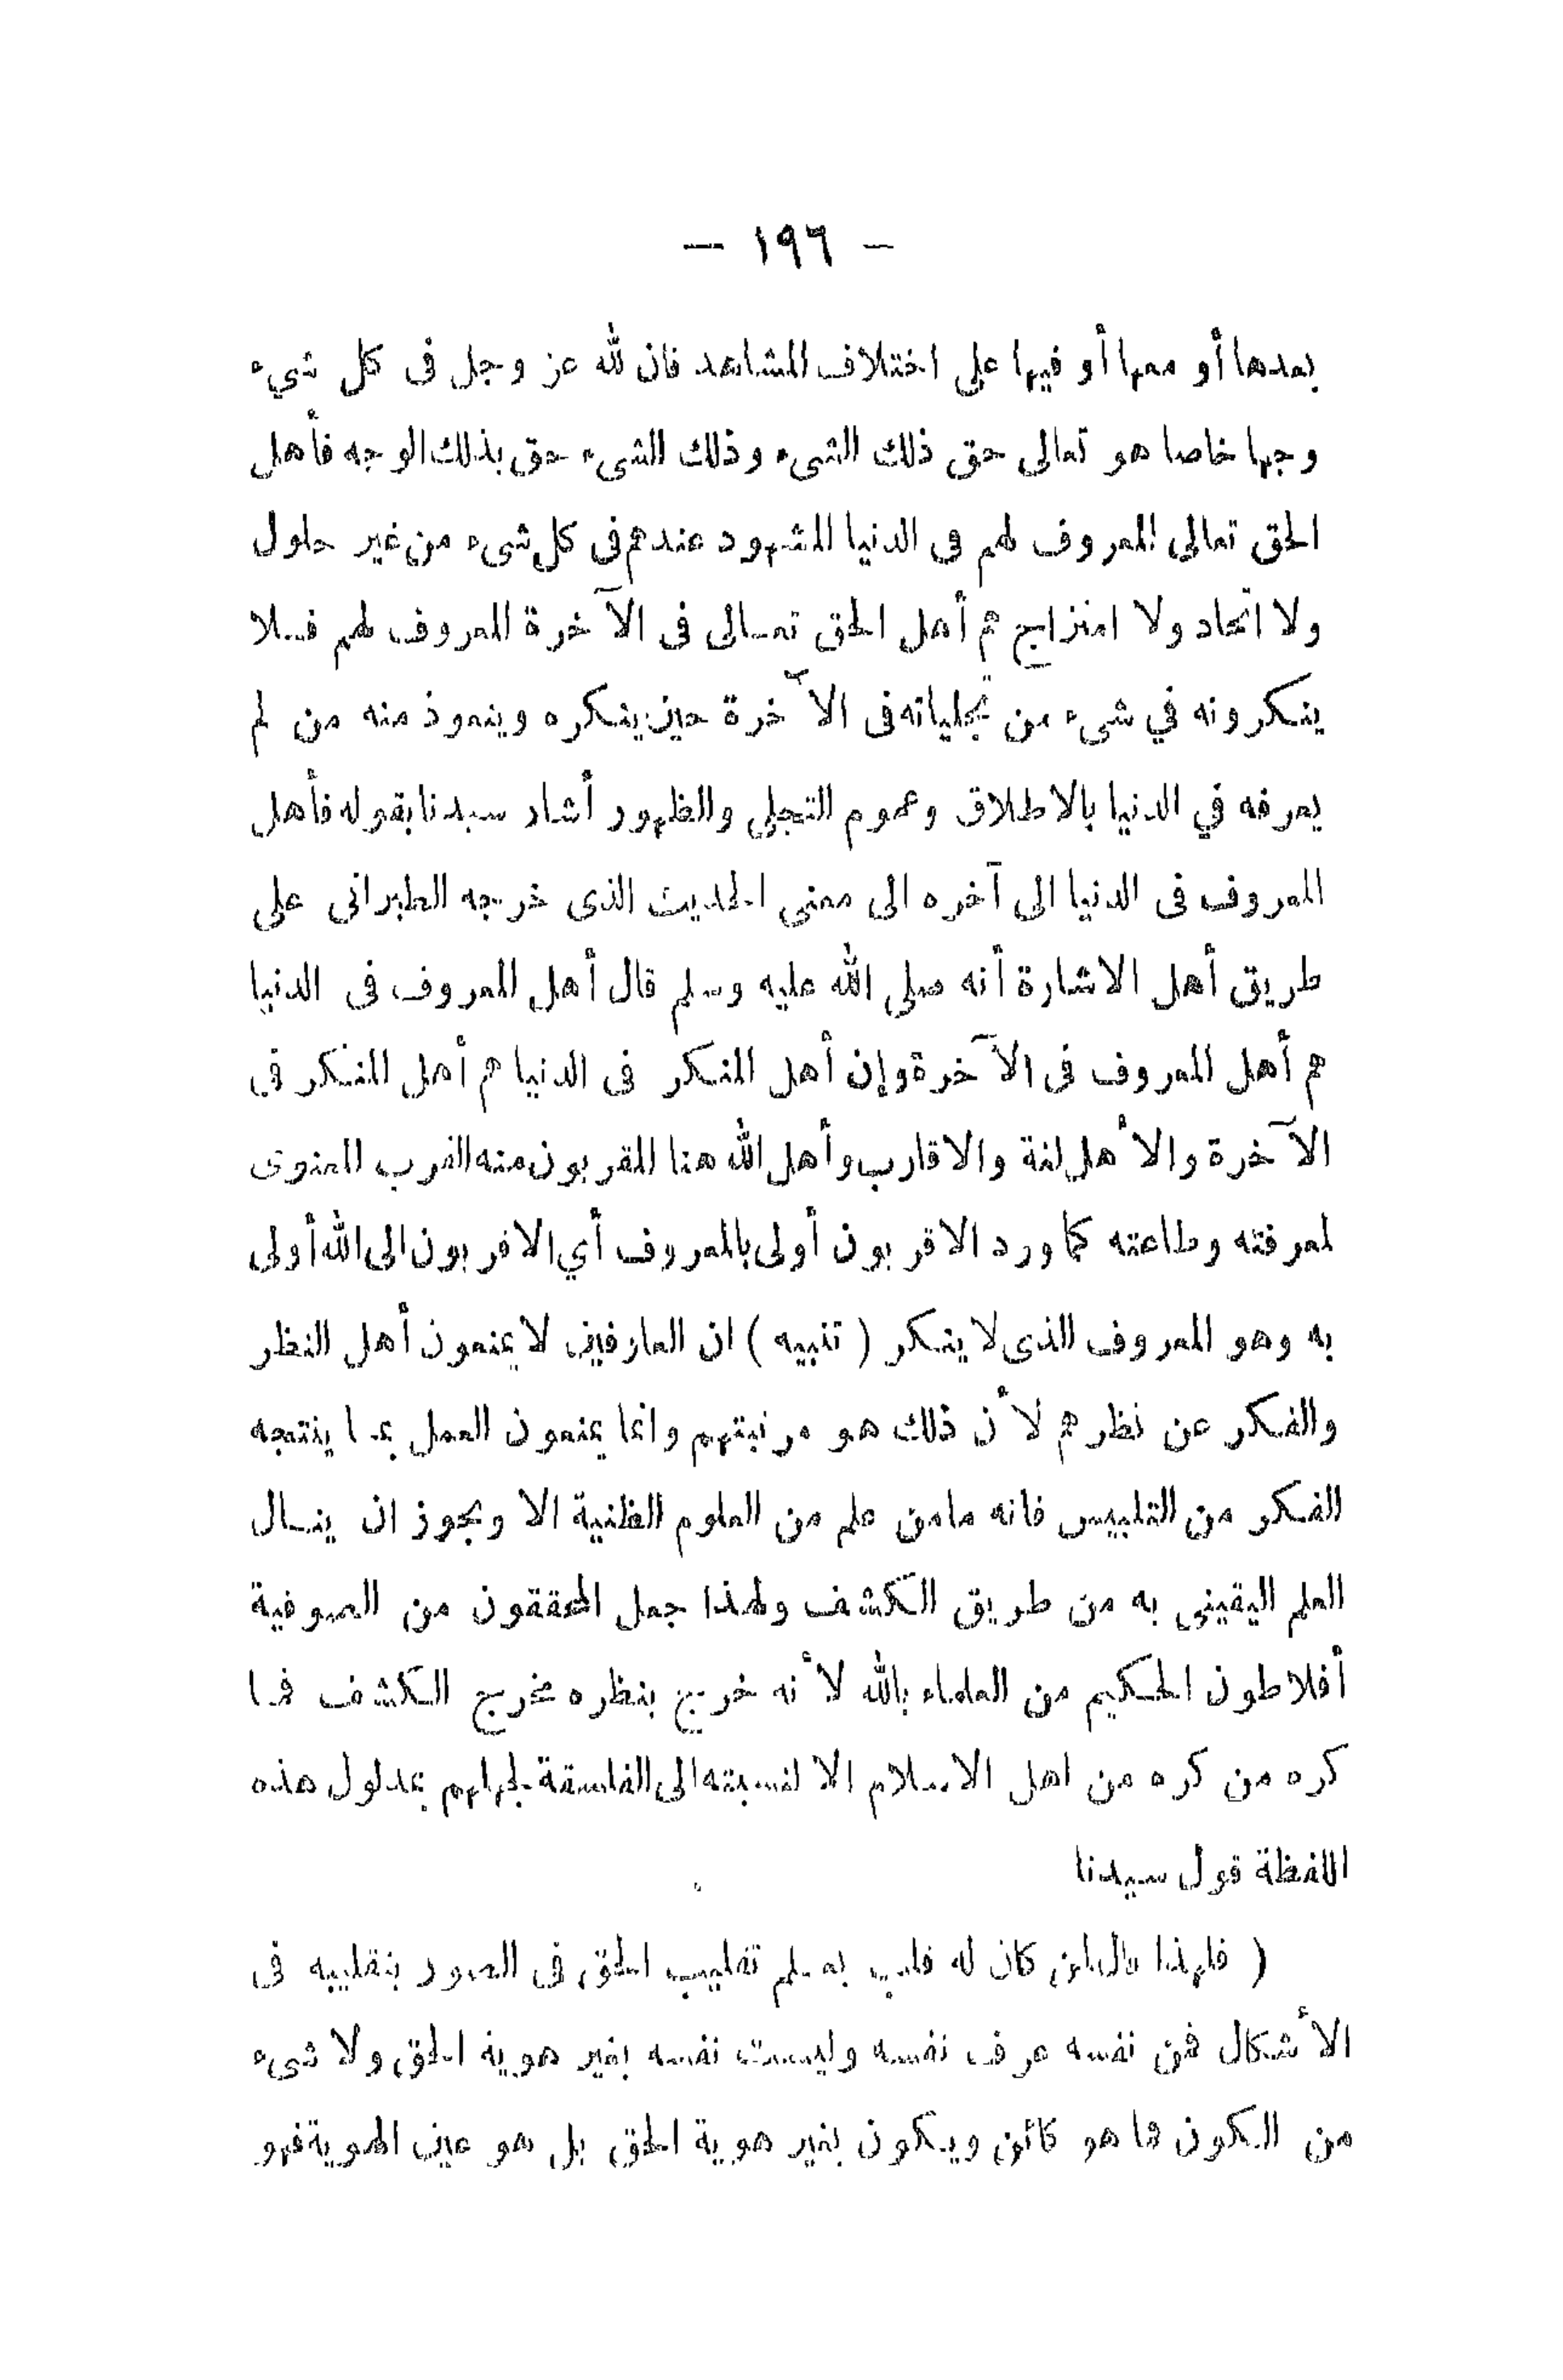 — ١٩٦ —
بعدها أو معها أو فيها على اختلاف المشاهد فان لله عز وجل فى كل شيء
وجها خاصا هو تعالى حق ذلك الشىء وذلك الشىء حق بذلك الوجه فأهل
الحق تعالى المعروف لهم فى الدنيا المشهود عندهم فى كل شىء من غير حلول
ولا اتحاد ولا امتزاج هم أهل الحق تعالى فى الآخرة المعروف لهم فلا
ينكرونه في شىء من تجلياته فى الآخرة حين ينكره ويتعوذ منه من لم
يعرفه في الدنيا بالاطلاق وعموم التجلى والظهور أشار سيدنا بقوله فأهل
المعروف فى الدنيا الى آخره الى معنى الحديث الذى خرجه الطبرانى على
طريق أهل الاشارة أنه صلى الله عليه وسلم قال أهل المعروف فى الدنيا
هم أهل المعروف فى الآخرة وإن أهل المنكر فى الدنيا هم أهل المنكر في
الآخرة والأهل لغة والاقارب وأهل الله هنا المقربون منه القرب المعنوى
لمعرفته وطاعته كما ورد الاقربون أولى بالمعروف أي الاقربون الى الله أولى
به وهو المعروف الذى لا ينكر ( تنبيه ) ان العارفين لا يمنعون أهل النظر
والفكر عن نظرهم لأن ذلك هو مرتبتهم وانما يمنعون العمل بما ينتجه
الفكر من التلبيس فانه مامن علم من العلوم الظنية الا ويجوز ان ينال
العلم اليقينى به من طريق الكشف ولهذا جعل المحققون من الصوفية
أفلاطون الحكيم من العلماء بالله لأنه خرج بنظره مخرج الكشف فما
كره من كره من اهل الاسلام الا لنسبته الى الفلسفة لجهلهم بمدلول هذه
اللفظة قول سيدنا
( فلهذا قال لمن كان له قلب به يعلم تقليب الحق فى الصور بتقليبه فى
الأشكال فمن نفسه عرف نفسه وليست نفسه بغير هوية الحق ولا شىء
من الكون مما هو كائن ويكون بغير هوية الحق بل هو عين الهوية فهو